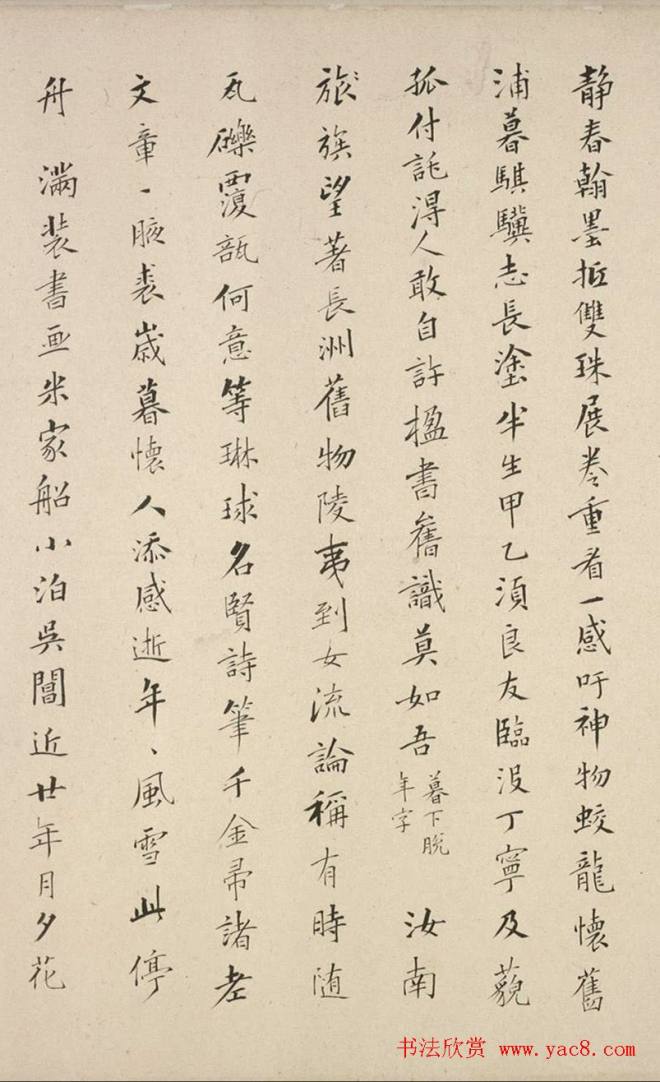 静春翰墨抵雙珠展卷重看一感吁神物蛟龍懷舊
浦暮騏驥志長塗半生甲乙湏良友臨沒丁寧及藐
孤付託得人敢自許楹書舊識莫如吾
暮下脫
年字
汝南
旅族望著長洲舊物陵夷到女流論稱有時随
瓦礫覆瓿何意等琳球名賢詩筆千金帚諸老
文章一腋裘歳暮懷人添感逝年、風雪此停
舟 滿装書画米家船小泊吳閶近廿年月夕花
书法欣赏 www.yac8.com